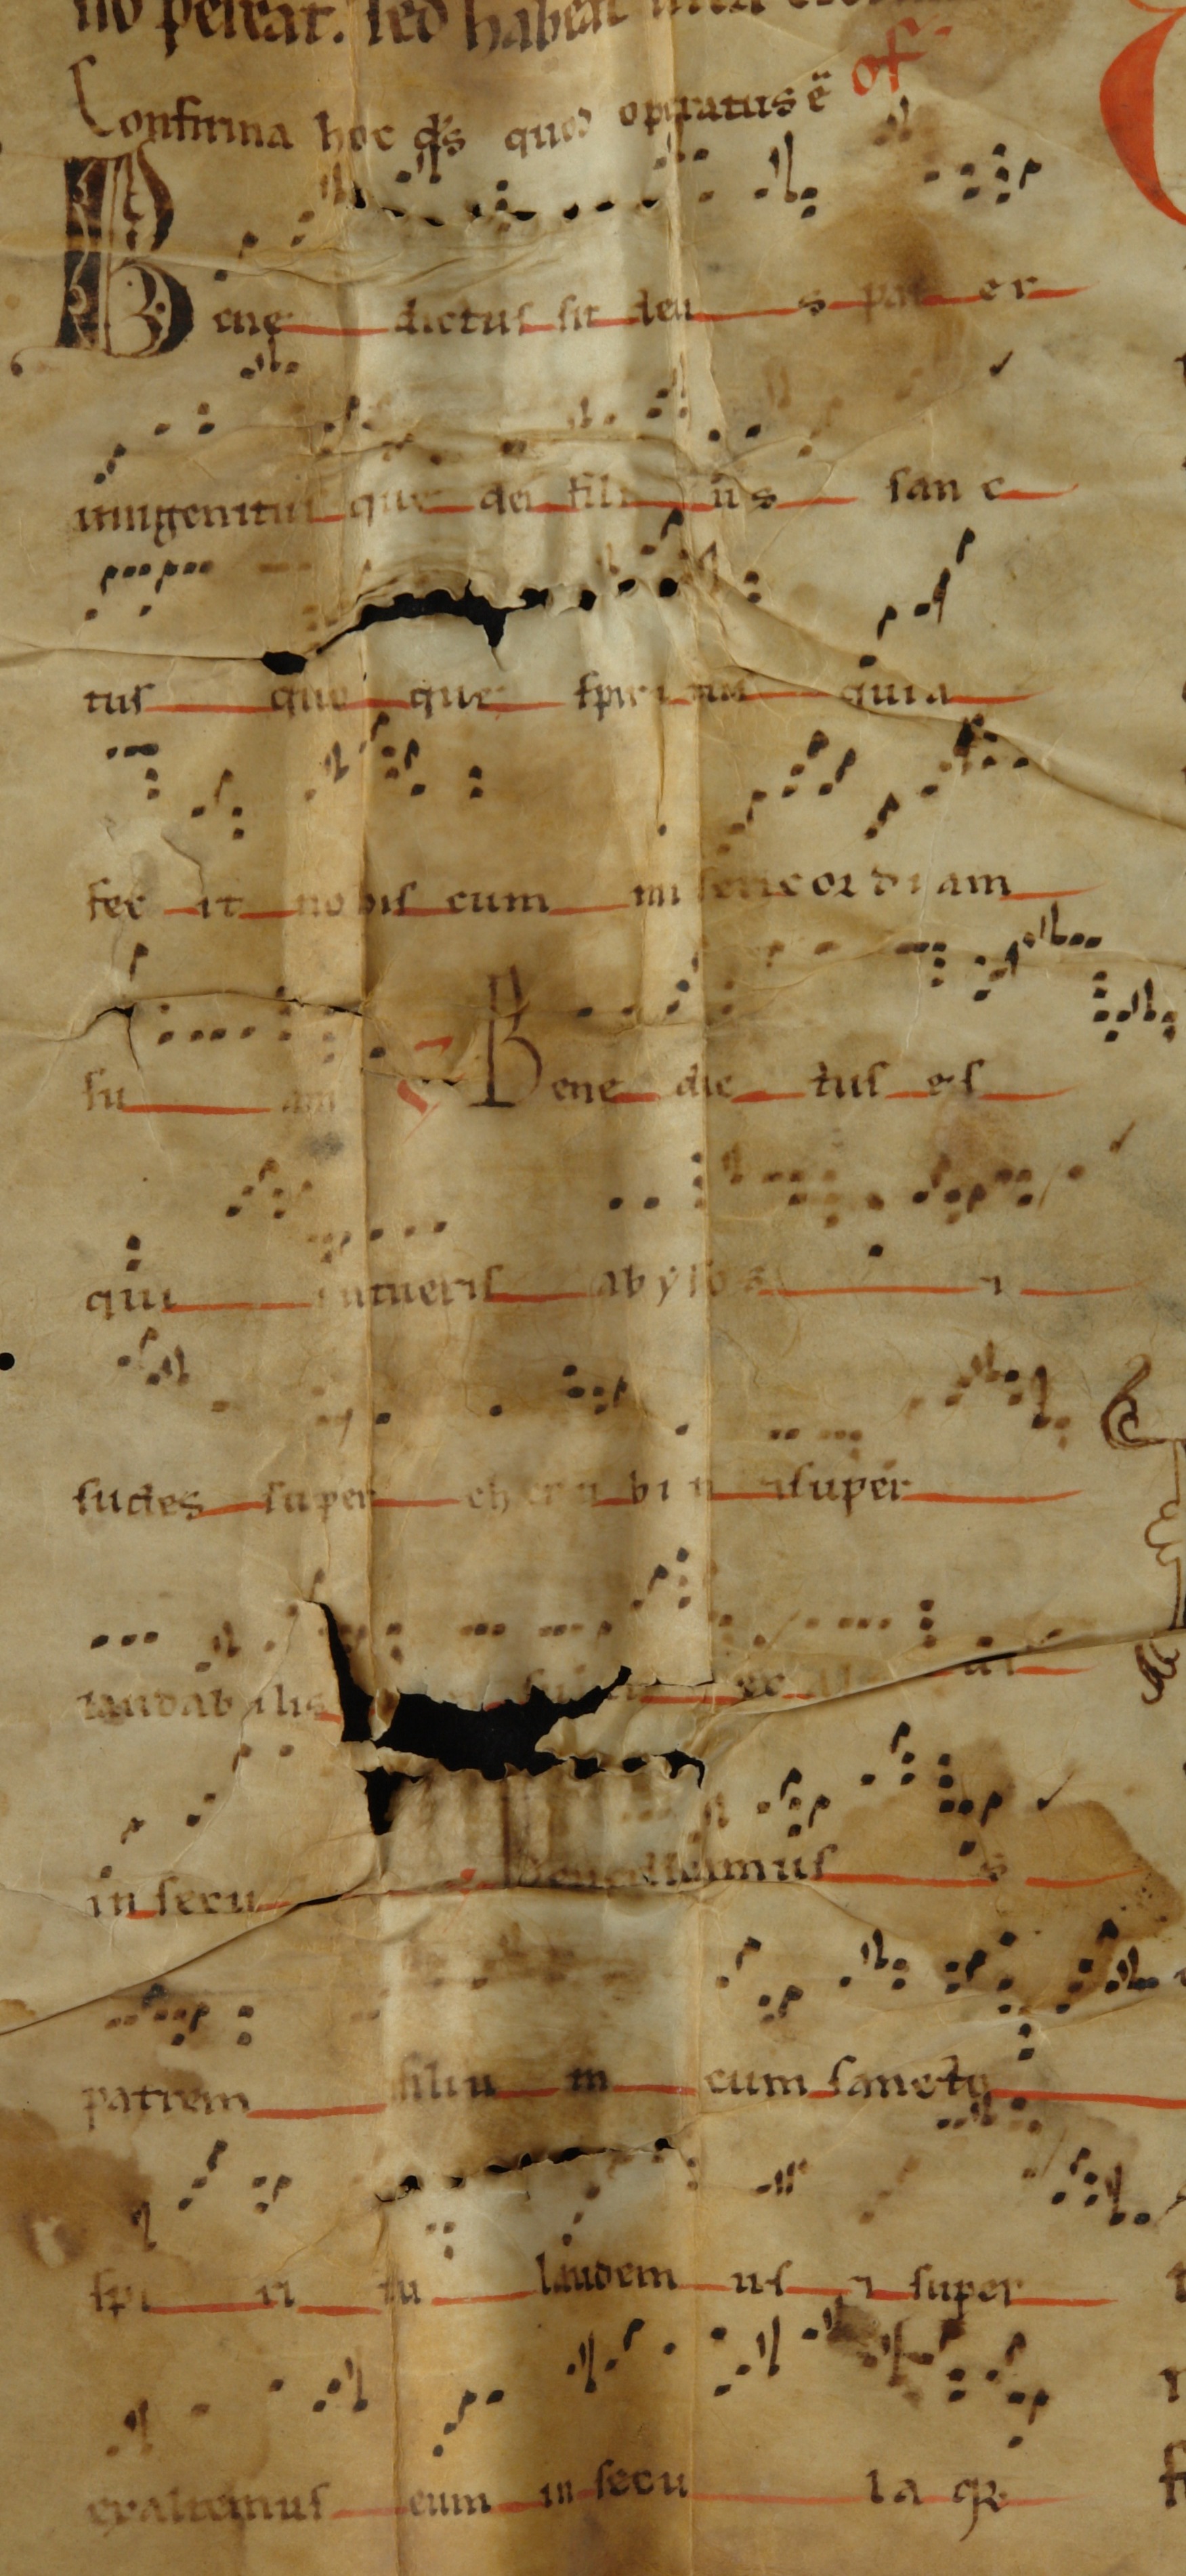 no pereat. sed habeat
Confirma hoc ds quod operatus ē of
Bene dictus sit deu s pat er
unigenitus que dei fili us sanc
tus quo que spiri tus quia
fec it nobis cum mi sericordiam
su am Bene dic tus es
qui intueris abysos i
sudes super cherubin isuper
laudabilis
in secu Benedicamus s
patrem filiu m cum sancto
spi ri tu laudem us i super
exaltemus eum in secu la qr